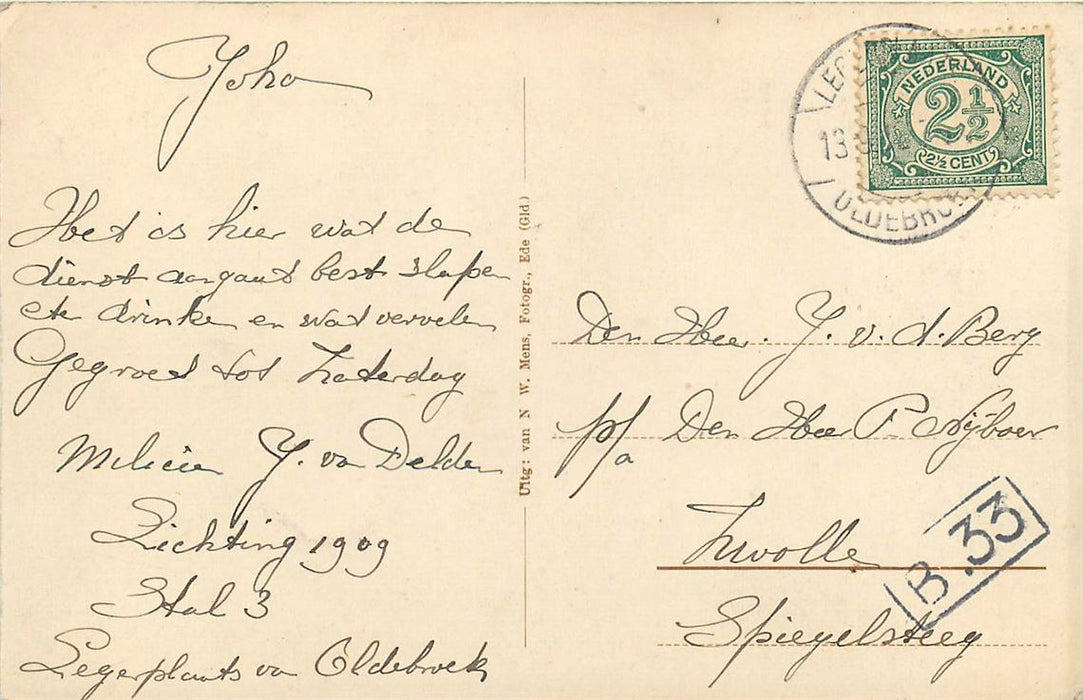 Joha
Het is hier wat de
dienst aangaat best slapen
eten drinken en wat vervelen
Gegroet tot Zaterdag
Milicien J. van Delden
Lichting 1909
Stal 3
Legerplaats van Oldebroek
Uitg: van N W. Mens, Fotogr., Ede (Gld.)
NEDERLAND
2 1/2
2½ CENT
13
OLDEBRO
Den Heer J. v. d. Berg
p/a Den Heer P. Nijboer
Zwolle
Spiegelsteeg
B.33